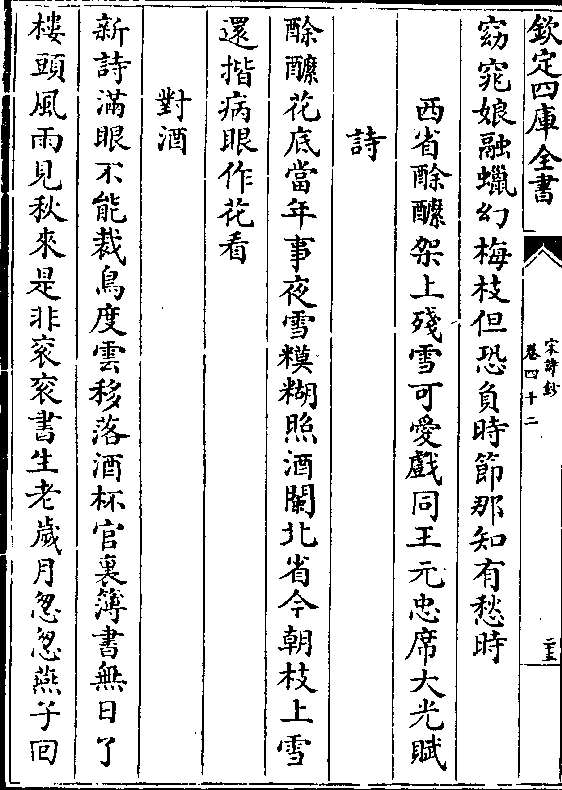 欽定四庫全書
宋詩鈔
卷四十二
二三
窈窕娘融蠟幻梅枝但恐負時節那知有愁時
西省酴醿架上殘雪可愛戲同王元忠席大光賦
詩
酴醿花底當年事夜雪糢糊照酒闌北省今朝枝上雪
還揩病眼作花看
對酒
新詩滿眼不能裁鳥度雲移落酒杯官裏簿書無日了
樓頭風雨見秋來是非衮衮書生老歲月怱怱燕子回